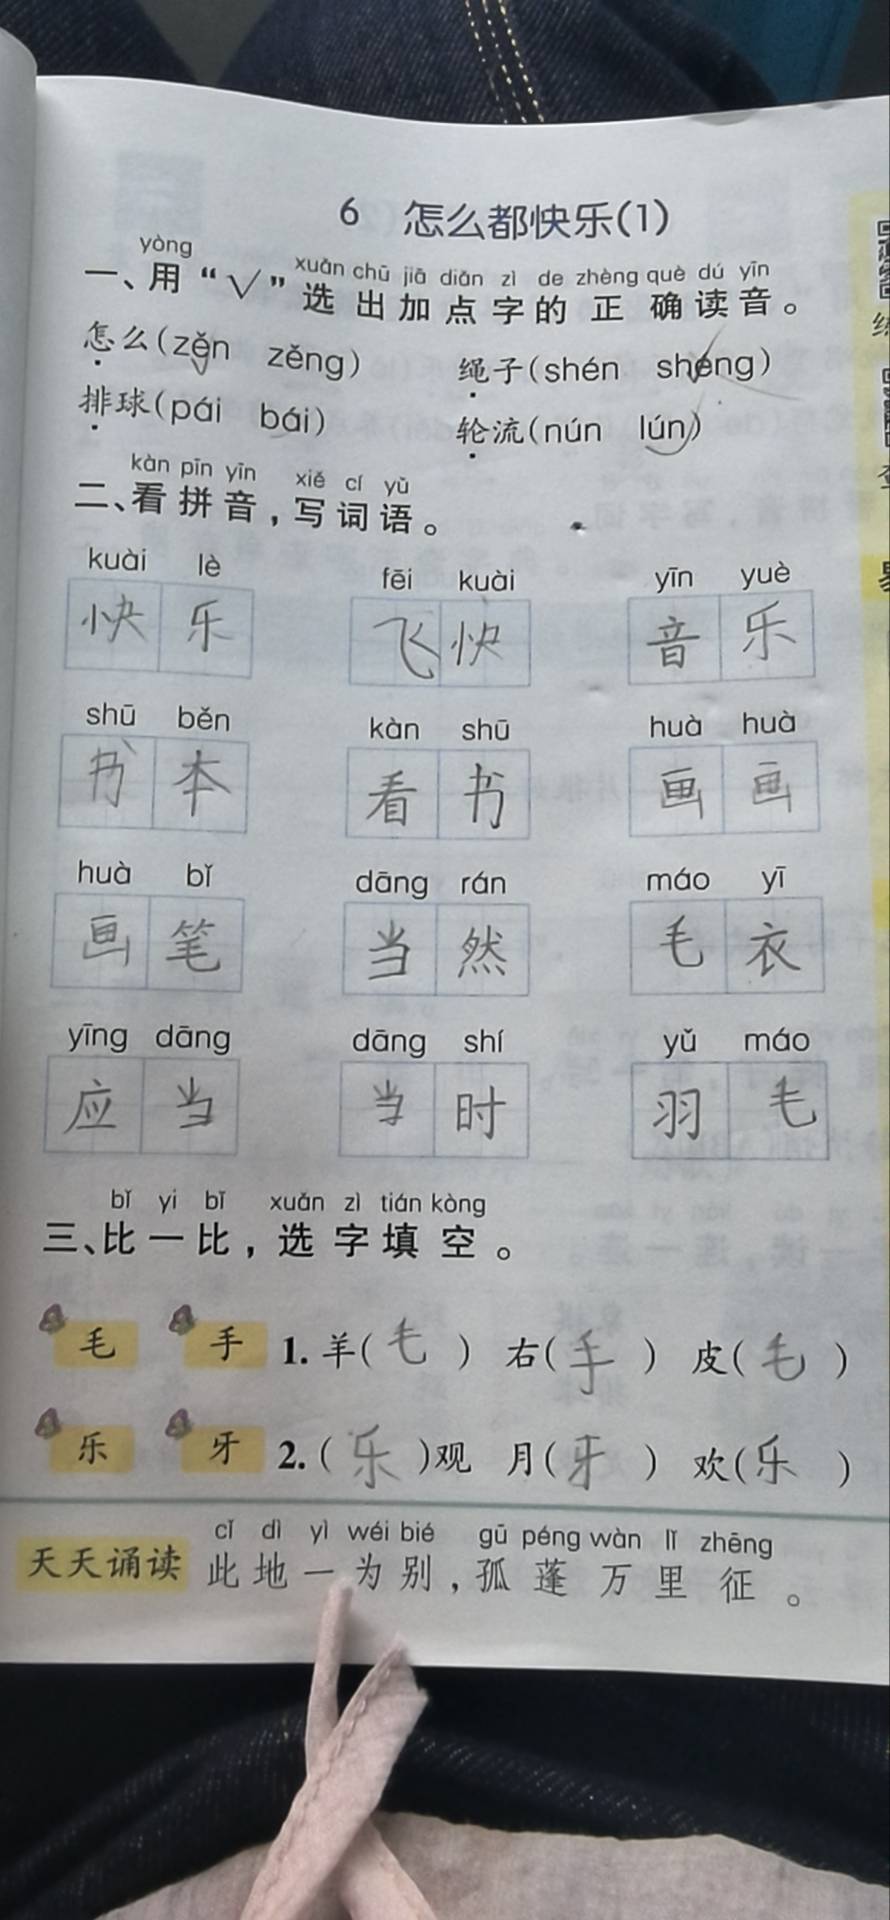 6 怎么都快乐(1)
yòng xuǎn chū jiā diǎn zì de zhèng què dú yīn
一、用“√”选出加点字的正确读音。
怎么(zěn zěng) 绳子(shén shéng)
排球(pái bái) 轮流(nún lún)
kàn pīn yīn xiě cí yǔ
二、看拼音,写词语。
kuài lè fēi kuài yīn yuè
快乐 飞快 音乐
shū běn kàn shū huà huà
书本 看书 画画
huà bǐ dāng rán máo yī
画笔 当然 毛衣
yīng dāng dāng shí yǔ máo
应当 当时 羽毛
bǐ yi bǐ xuǎn zì tián kòng
三、比一比,选字填空。
毛 手 1. 羊(毛) 右(手) 皮(毛)
乐 牙 2. (乐)观 月(牙) 欢(乐)
cǐ dì yì wéi bié gū péng wàn lǐ zhēng
天天诵读 此地一为别,孤蓬万里征。